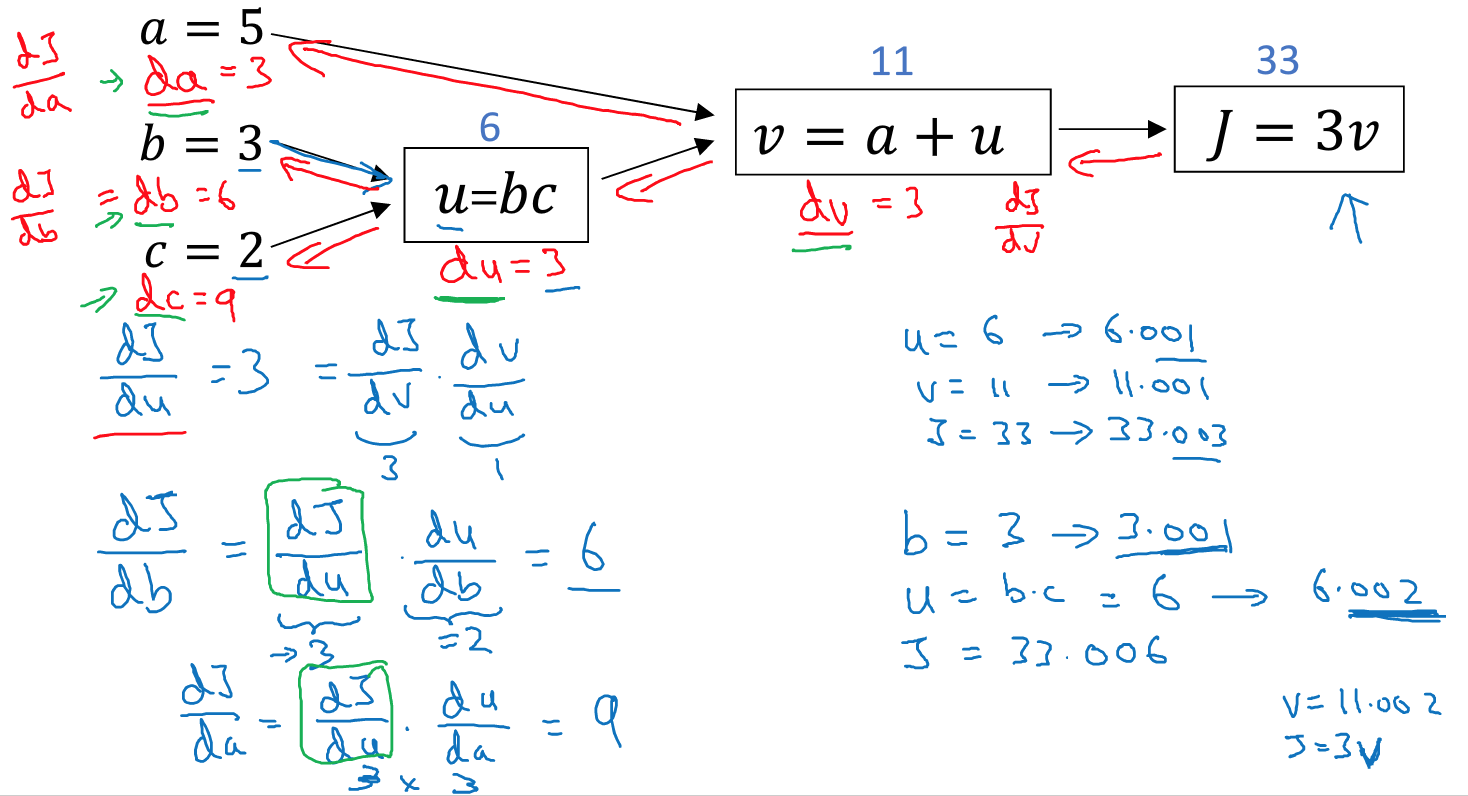 a = 5
dJ/da → da = 3
b = 3
dJ/db = db = 6
→
c = 2
→ dc = 9
6
u=bc
du = 3
11
v = a + u
dv = 3 dJ/dv
33
J = 3v
dJ/du = 3 = dJ/dv · dv/du
3 1
dJ/db = dJ/du · du/db = 6
→ 3 =2
dJ/da = dJ/du · du/da = 9
3 × 3
u = 6 → 6.001
v = 11 → 11.001
J = 33 → 33.003
b = 3 → 3.001
u = b·c = 6 → 6.002
J = 33.006
v = 11.002
J = 3v